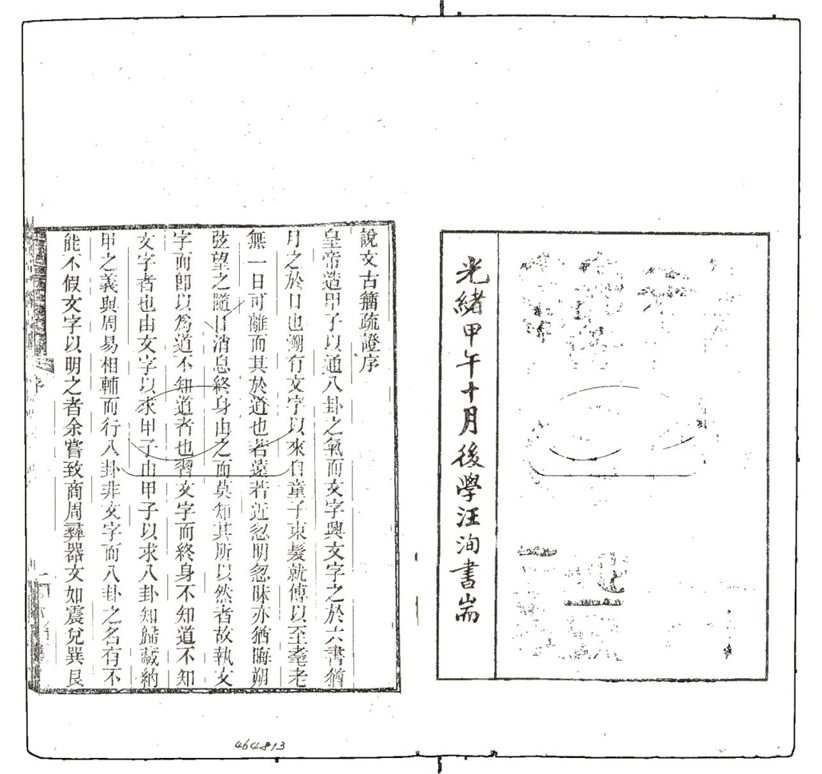 光緒甲午十月後學汪洵書耑
說文古籀疏證序
皇帝造甲子以通八卦之氣而文字興文字之於六書猶
月之於日也溯有文字以來自童子束髮就傅以至耄老
無一日可離而其於道也若遠若近忽明忽昧亦猶晦朔
弦望之隨日消息終身由之而莫知其所以然者故執文
字而卽以爲道不知道者也習文字而終身不知道不知
文字者也由文字以求甲子由甲子以求八卦知歸藏納
甲之義與周易相輔而行八卦非文字而八卦之名有不
能不假文字以明之者余嘗致商周彞器文如震兌巽艮
序
一
464813